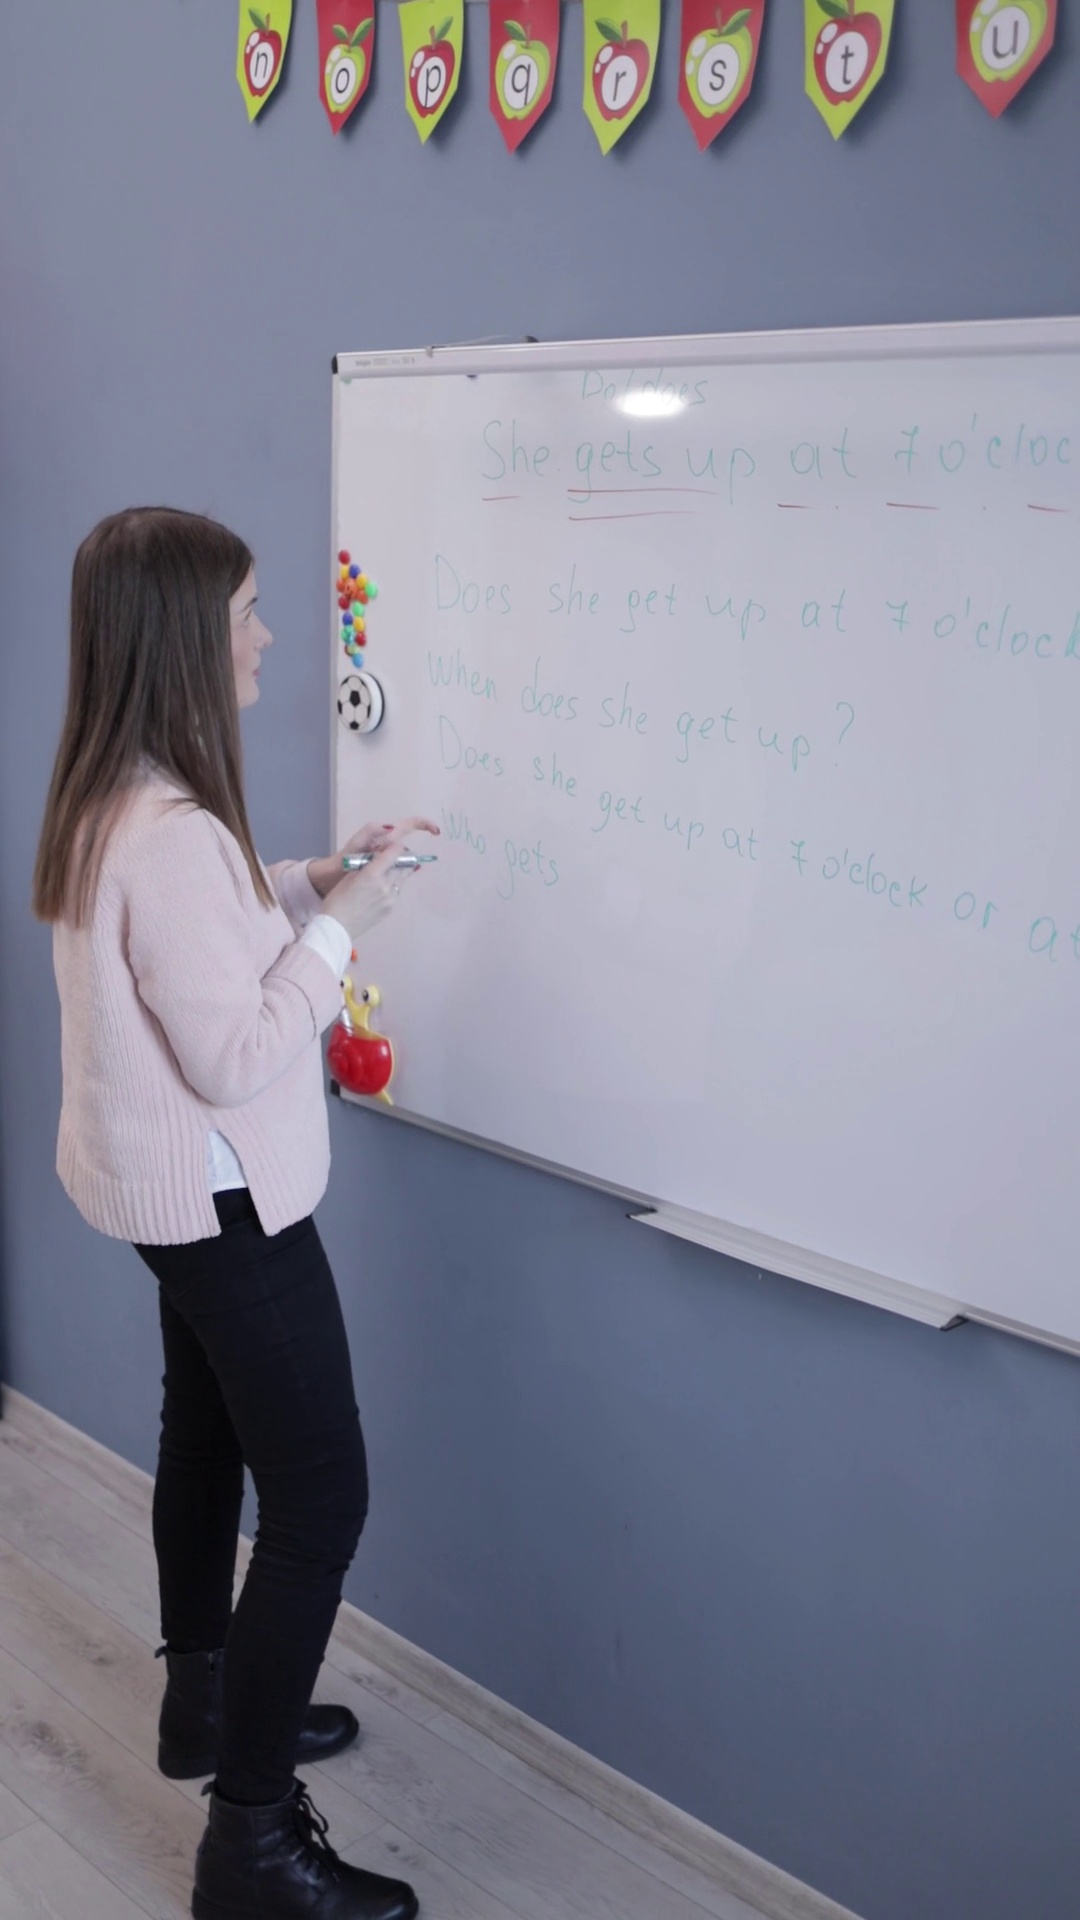 n o p q r s t u
Do/does
She gets up at 7 o'cloc
Does she get up at 7 o'clock
When does she get up?
Does she get up at 7 o'clock or at
Who gets